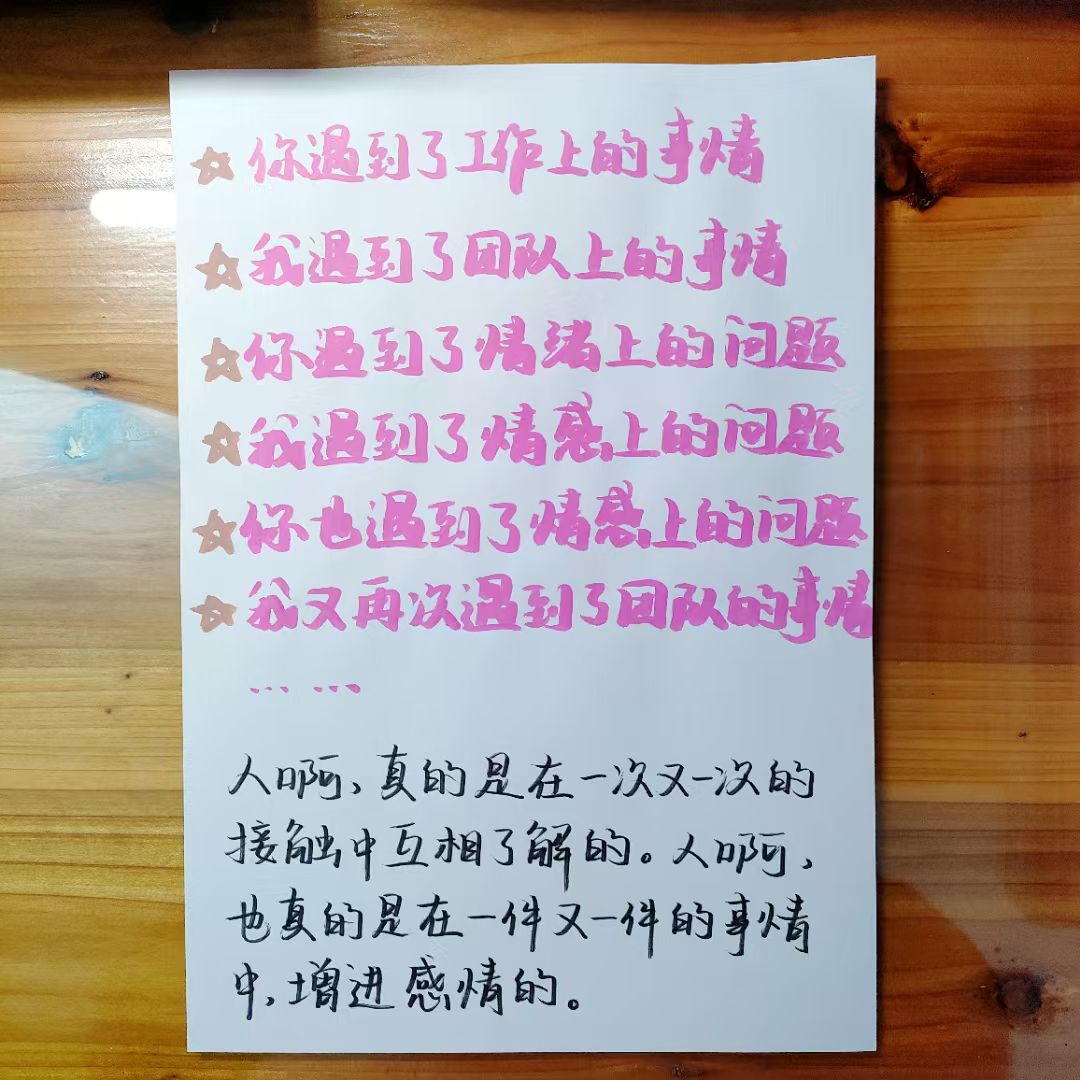 ☆你遇到了工作上的事情
☆我遇到了团队上的事情
☆你遇到了情绪上的问题
☆我遇到了情感上的问题
☆你也遇到了情感上的问题
☆我又再次遇到了团队的事情
……
人啊，真的是在一次又一次的
接触中互相了解的。人啊，
也真的是在一件又一件的事情
中，增进感情的。